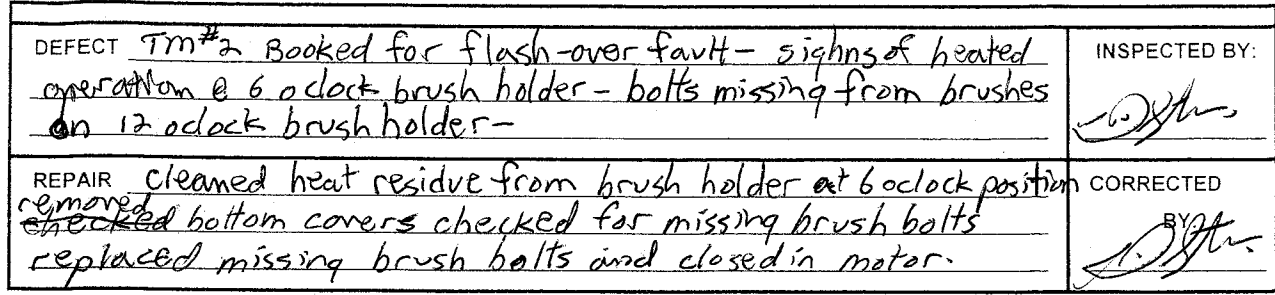 DEFECT TM#2 Booked for flash-over fault - sighns of heated
operation @ 6 oclock brush holder - bolts missing from brushes
on 12 oclock brush holder -
INSPECTED BY:
REPAIR Cleaned heat residue from brush holder at 6 oclock position
removed
checked bottom covers checked for missing brush bolts
replaced missing brush bolts and closed in motor.
CORRECTED
BY